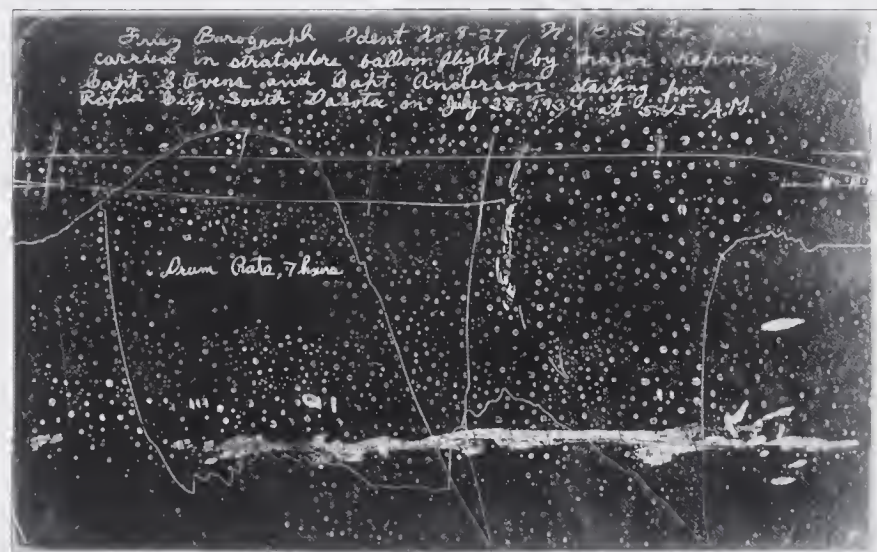 Friez Barograph Ident No. 8-27 N. B. S. No.
carried in stratosphere balloon flight by Major Kepner,
Capt. Stevens and Capt. Anderson starting from
Rapid City, South Dakota on July 28, 1934 at 5:45 A.M.
Drum Rate, 7 hours